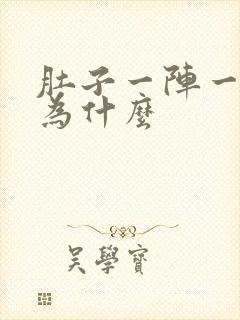 肚子一陣一
為什麼
吳學寶